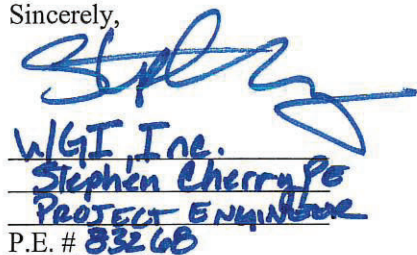 Sincerely,
WGI, Inc.
Stephen Cherry PE
PROJECT ENGINEER
P.E. # 83268